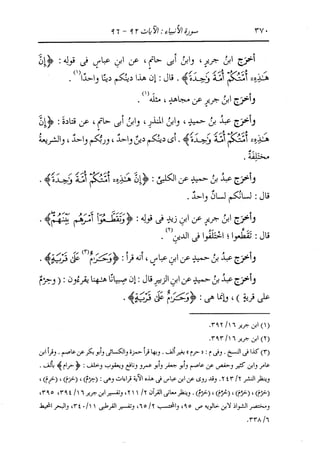 ٣٧٠ سورة الأنبياء : الآيات ٩٢ - ٩٦
أخرج ابنُ جريرٍ ، وابنُ أبى حاتمٍ ، عن ابنِ عباسٍ فى قولِه : ﴿ إِنَّ
هَٰذِهِۦٓ أُمَّتُكُمْ أُمَّةً وَٰحِدَةً ﴾ . قال : إن هذا دينُكم دينًا واحدًا(١) .
وأخرَج ابنُ جريرٍ عن مجاهدٍ ، مثلَه(١) .
وأخرَج عبدُ بنُ حميدٍ ، وابنُ المنذرِ ، وابنُ أبى حاتمٍ ، عن قتادةَ : ﴿ إِنَّ
هَٰذِهِۦٓ أُمَّتُكُمْ أُمَّةً وَٰحِدَةً ﴾ . أى دينُكم دينٌ واحدٌ ، وربُّكم واحدٌ ، والشريعةُ
مختلفةٌ .
وأخرَج عبدُ بنُ حميدٍ عن الكلبىِّ : ﴿ إِنَّ هَٰذِهِۦٓ أُمَّتُكُمْ أُمَّةً وَٰحِدَةً ﴾ .
قال : لسانُكم لسانٌ واحدٌ .
وأخرَج ابنُ جريرٍ عن ابنِ زيدٍ فى قولِه : ﴿ وَتَقَطَّعُوٓا۟ أَمْرَهُم بَيْنَهُمْ ﴾ .
قال : تقطَّعوا ؛ اختلَفوا فى الدينِ(٢) .
وأخرَج عبدُ بنُ حميدٍ عن ابنِ عباسٍ ، أنه قرَأ : ﴿ وَحَرَٰمٌ(٣) عَلَىٰ قَرْيَةٍ ﴾ .
وأخرَج عبدُ بنُ حميدٍ عن ابنِ الزبيرِ قال : إن صبيانًا ههنا يقرَءون : ( وحِرْمٌ
على قريةٍ ) ، وإنما هى : ﴿ وَحَرَٰمٌ عَلَىٰ قَرْيَةٍ ﴾ .
(١) ابن جرير ١٦/ ٣٩٢.
(٢) ابن جرير ١٦/ ٣٩٣.
(٣) كذا فى النسخ . وفى م : « حرم » بغير ألف . وبها قرأ حمزة والكسائى وأبو بكر عن عاصم . وقرأ ابن
عامر وابن كثير وحفص عن عاصم وأبو جعفر وأبو عمرو ونافع ويعقوب وخلف : ﴿ حرام ﴾ بألف .
وينظر النشر ٢/ ٢٤٣. وقد روى عن ابن عباس فى هذه الآية قراءات وهى :
وينظر معانى القرآن ٢/ ٢١١، وتفسير ابن جرير ١٦/ ٣٩٤، ٣٩٥،
ومختصر الشواذ لابن خالويه ص ٩٥، والمحتسب ٢/ ٦٥، وتفسير القرطبى ١١/ ٣٤٠، والبحر المحيط
٦/ ٣٣٨.